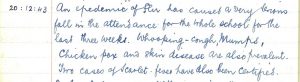 20:12:43 An epidemic of Flu has caused a very serious
fall in the attendance for the whole school for the
last three weeks. Whooping-cough, Mumps,
Chicken pox and skin disease are also prevalent.
Two cases of Scarlet-fever have also been certified.